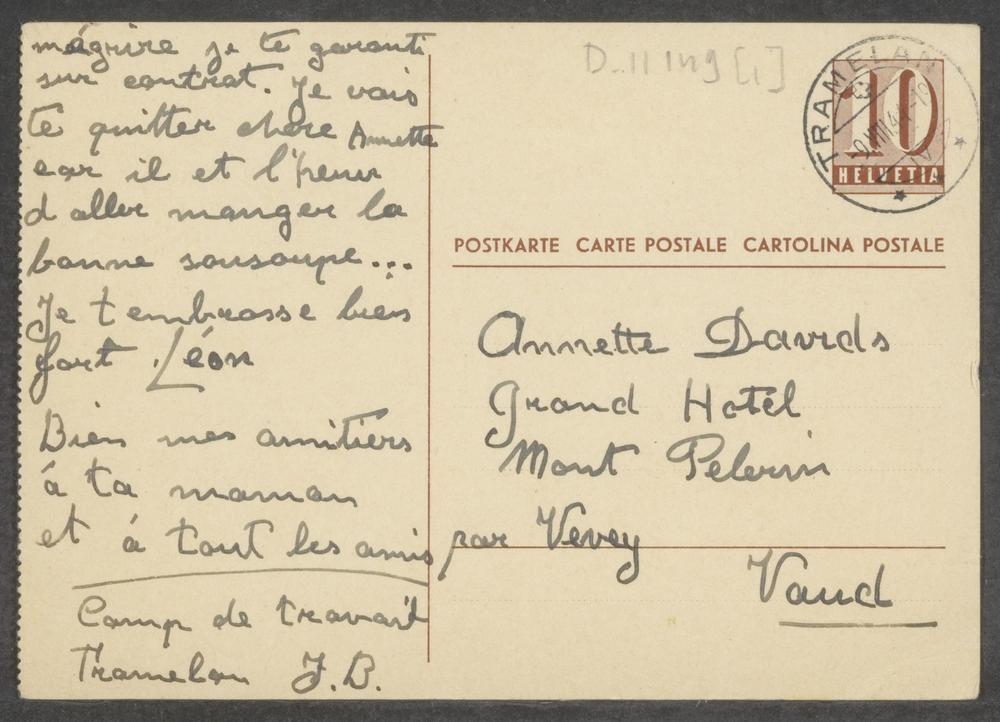 mégrire je te garanti
sur contrat. Je vais
te quitter chere Annette
car il et l'heure
d aller manger la
bonne sousoupe...
Je t embrasse bien
fort. Léon
Bien mes amitiers
á ta maman
et á tout les amis
Camp de travail
Tramelan J.B.
D-II 1119 [1]
TRAMELAN
10
HELVETIA
POSTKARTE CARTE POSTALE CARTOLINA POSTALE
Annette Davids
Grand Hotel
Mont Pelerin
par Vevey
Vaud